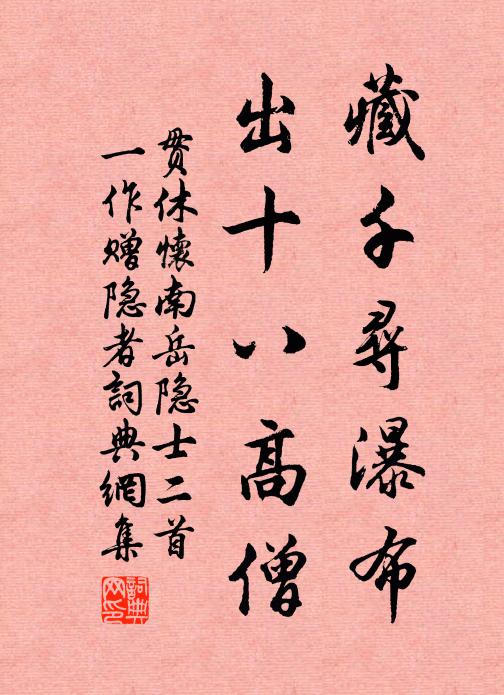 藏千尋瀑布
出十八高僧
贯休懷南岳隐士二首
一作赠隐者詞典網集
詞典網印